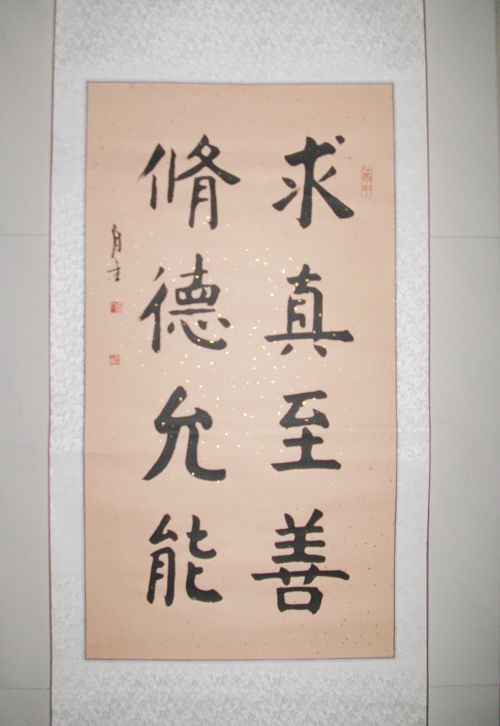 求真至善
脩德允能